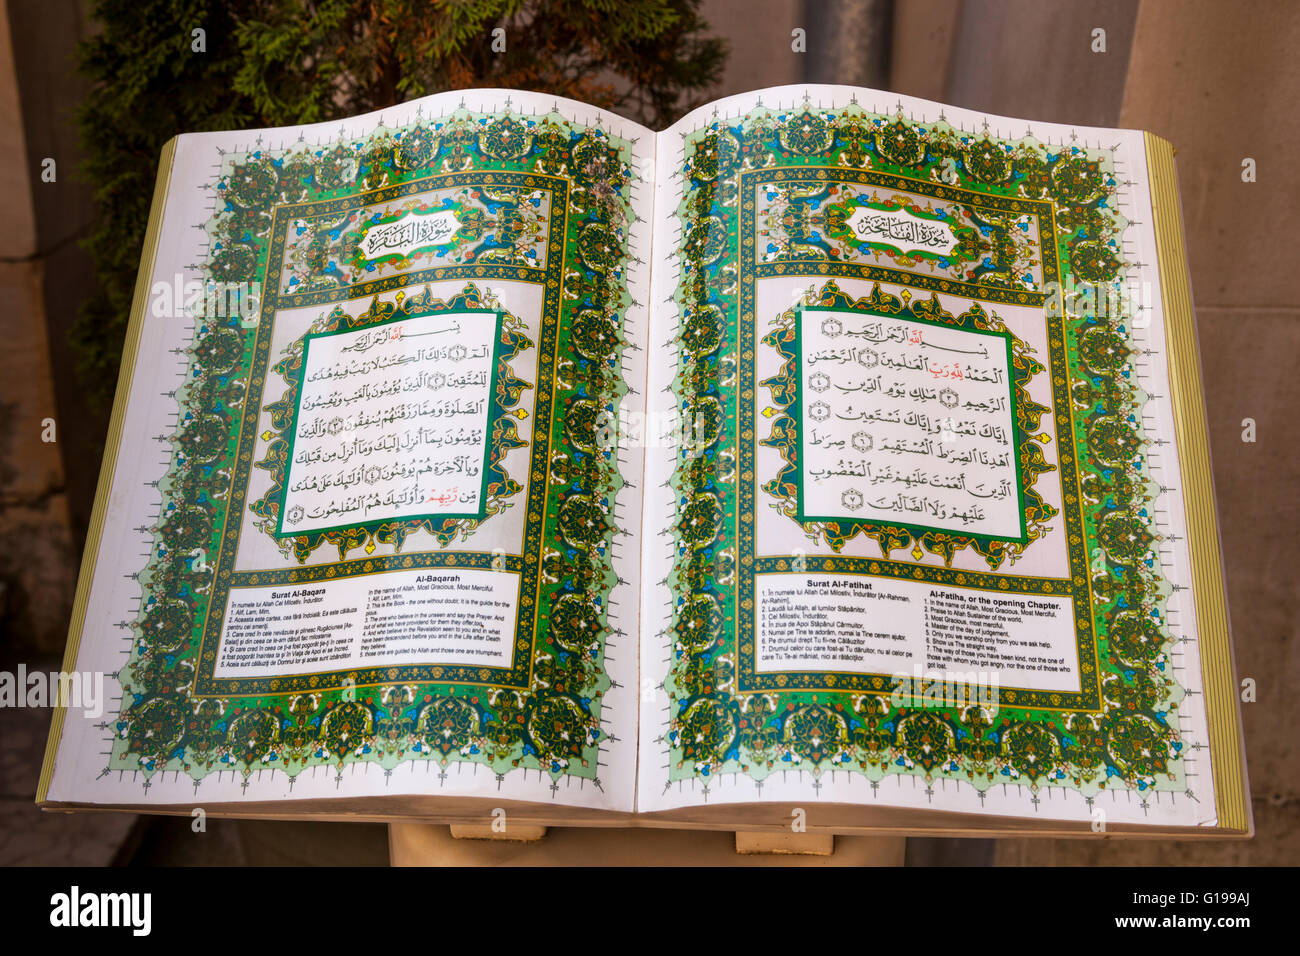 سُورَةُ الْفَاتِحَةِ
بِسْمِ اللَّهِ الرَّحْمَٰنِ الرَّحِيمِ ١
الْحَمْدُ لِلَّهِ رَبِّ الْعَالَمِينَ ٢ الرَّحْمَٰنِ
الرَّحِيمِ ٣ مَالِكِ يَوْمِ الدِّينِ ٤
إِيَّاكَ نَعْبُدُ وَإِيَّاكَ نَسْتَعِينُ ٥
اهْدِنَا الصِّرَاطَ الْمُسْتَقِيمَ ٦ صِرَاطَ
الَّذِينَ أَنْعَمْتَ عَلَيْهِمْ غَيْرِ الْمَغْضُوبِ
عَلَيْهِمْ وَلَا الضَّالِّينَ ٧
Surat Al-Fatihat
1. În numele lui Allah Cel Milostiv, Îndurător [Ar-Rahman,
Ar-Rahim],
2. Laudă lui Allah, al lumilor Stăpânitor,
3. Cel Milostiv, Îndurător,
4. În ziua de Apoi Stăpânul Cârmuitor,
5. Numai pe Tine te adorăm, numai la Tine cerem ajutor,
6. Pe drumul drept Tu fii-ne Călăuzitor
7. Drumul celor cu care fost-ai Tu dăruitor, nu al celor pe
care Tu Te-ai mâniat, nici al rătăciţilor.
Al-Fatiha, or the opening Chapter.
1. In the name of Allah, Most Gracious, Most Merciful.
2. Praise to Allah Sustainer of the world.
3. Most Gracious, most merciful,
4. Master of the day of judgement,
5. Only you we worship only from you we ask help,
6. Show us The straight way,
7. The way of those you have been kind, not the one of
those with whom you got angry, nor the one of those who
got lost.
سُورَةُ الْبَقَرَةِ
بِسْمِ اللَّهِ الرَّحْمَٰنِ الرَّحِيمِ
الٓمٓ ١ ذَٰلِكَ الْكِتَابُ لَا رَيْبَ فِيهِ هُدًى
لِلْمُتَّقِينَ ٢ الَّذِينَ يُؤْمِنُونَ بِالْغَيْبِ وَيُقِيمُونَ
الصَّلَاةَ وَمِمَّا رَزَقْنَاهُمْ يُنفِقُونَ ٣ وَالَّذِينَ
يُؤْمِنُونَ بِمَا أُنزِلَ إِلَيْكَ وَمَا أُنزِلَ مِن قَبْلِكَ
وَبِالْآخِرَةِ هُمْ يُوقِنُونَ ٤ أُولَٰئِكَ عَلَىٰ هُدًى
مِّن رَّبِّهِمْ وَأُولَٰئِكَ هُمُ الْمُفْلِحُونَ ٥
Surat Al-Baqara
În numele lui Allah Cel Milostiv, Îndurător.
1. Alif, Lam, Mim,
2. Aceasta este cartea, cea fără îndoială. Ea este călăuza
pentru cei smeriţi
3. Care cred în cele nevăzute şi plinesc Rugăciunea [As-
Salat] şi din ceea ce le-am dăruit fac milostenie.
4. Şi care cred în ceea ce ţi-a fost pogorât în ceea ce
a fost pogorât înaintea ta şi în Viaţa de Apoi ei se încred.
5. Aceia sunt călăuziţi de Domnul lor şi aceia sunt izbânditori
Al-Baqarah
In the name of Allah, Most Gracious, Most Merciful.
1. Alif, Lam, Mim.
2. This is the Book - the one without doubt, it is the guide for the
pious.
3. The one who believe in the unseen and say the Prayer. And
out of what we have provided for them they offer too,
4. And who believe in the Revelation seen to you and in what
have been descended before you and in the Life after Death
they believe.
5. those one are guided by Allah and those one are triumphant.
alamy
Image ID: G199AJ
www.alamy.com